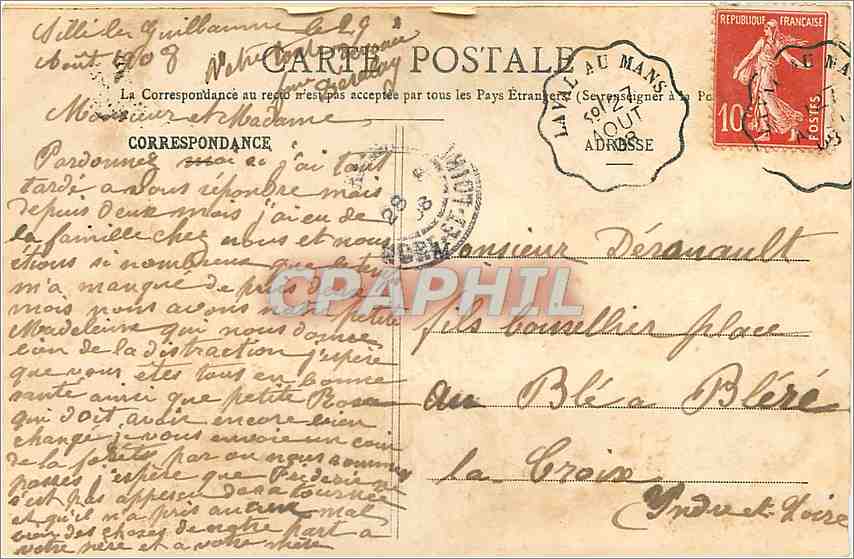 Sillé le Guillaume le 29
Août 1908
CARTE POSTALE
La Correspondance au recto n'est pas acceptée par tous les Pays Étrangers (Se renseigner à la Po
Monsieur et Madame
CORRESPONDANCE
ADRESSE
REPUBLIQUE FRANÇAISE
10
POSTES
LAVAL AU MANS
27
AOUT
08
LAVAL AU MA
28
08
INDRE-ET-LOIRE
Pardonnez moi si j'ai tant
tardé a vous répondre mais
depuis deux mois j'ai eu de
la famille chez nous et nous
étions si nombreux que le temps
m'a manqué de
mois nous avons petite
Madeleine qui nous donne
bien de la distraction j'espère
que vous êtes tous en bonne
santé ainsi que petite Rose
qui doit avoir encore bien
changé je vous envoie un coin
de la forêts par ou nous sommes
passés j'espère que
s'est pas apperçu de sa tournée
et qu'il n'a pris aucun mal
bien des choses de notre part a
votre père et a votre mère
CPAPHIL
Monsieur Déranault
fils place
au Blé a Bléré
la Croix
Indre et Loire